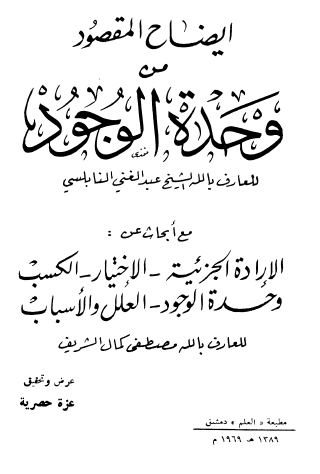 ايضاح المقصود
من
وحدة الوجود
للعارف بالله الشيخ عبد الغني النابلسي
مع أبحاث عن :
الإرادة الجزئية - الاختيار - الكسب
وحدة الوجود - العلل والأسباب
للعارف بالله مصطفى كمال الشريف
عرض وتحقيق
عزة حصرية
مطبعة « العلم » دمشق
١٣٨٩ هـ ١٩٦٩ م